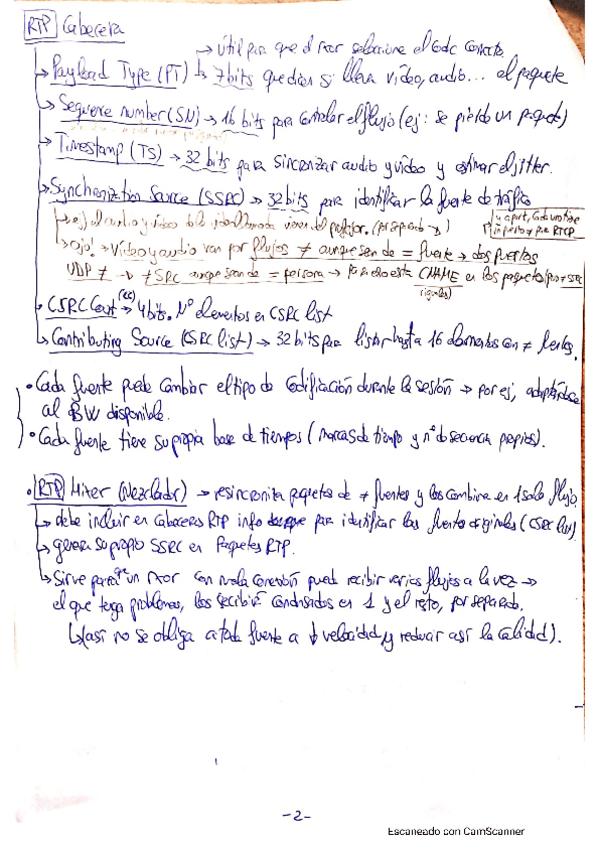 RTP Cabecera
→ Útil para que el rxor seleccione el Codec correcto.
→ Payload Type (PT) → 7 bits que dicen si lleva vídeo, audio... el paquete
→ Sequence number (SN) → 16 bits para controlar el flujo (ej: se pierde un paquete)
→ Timestamp (TS) → 32 bits para sincronizar audio y vídeo y estimar el jitter.
→ Synchronization Source (SSRC) → 32 bits para identificar la fuente de tráfico
→ ej, el audio y vídeo del profesor. (por separado →)
y aparte, cada uno tiene
su puerto ≠ para RTCP
→ ojo! → Vídeo y audio van por flujos ≠ aunque sean de = fuente → dos puertos
UDP ≠ → ≠ SRC aunque sean de = persona → para ello está CNAME en los paquetes (para ≠ SSRC
iguales)
→ CSRC Count (CC) → 4 bits. Nº elementos en CSRC list
→ Contributing Source (CSRC list) → 32 bits para listar hasta 16 elementos con ≠ fuentes.
• Cada fuente puede cambiar el tipo de codificación durante la sesión → por ej, adaptándose
al BW disponible.
• Cada fuente tiene su propia base de tiempos (marcas de tiempo y nº de secuencia propios).
• RTP Mixer (Mezclador) → resincroniza paquetes de ≠ fuentes y los combina en 1 solo flujo.
→ debe incluir en cabeceras RTP info para identificar las fuentes originales (CSRC list).
→ genera su propio SSRC en Paquetes RTP.
→ Sirve para que un rxor con mala conexión pueda recibir varios flujos a la vez →
el que tenga problemas, los recibirá condensados en 1 y el resto, por separado.
↳ (así no se obliga a toda fuente a ↓ velocidad y reducir así la calidad).
-2-
Escaneado con CamScanner